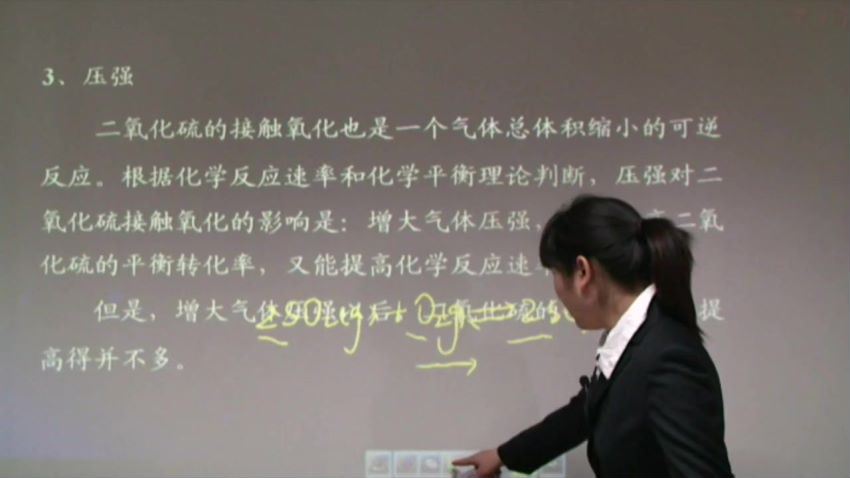 3、压强
二氧化硫的接触氧化也是一个气体总体积缩小的可逆
反应。根据化学反应速率和化学平衡理论判断，压强对二
氧化硫接触氧化的影响是：增大气体压强，二氧
化硫的平衡转化率，又能提高化学反应速
但是，增大气体压强以后，二氧化硫的提
高得并不多。
2SO2(g)+O2(g)⇌2SO